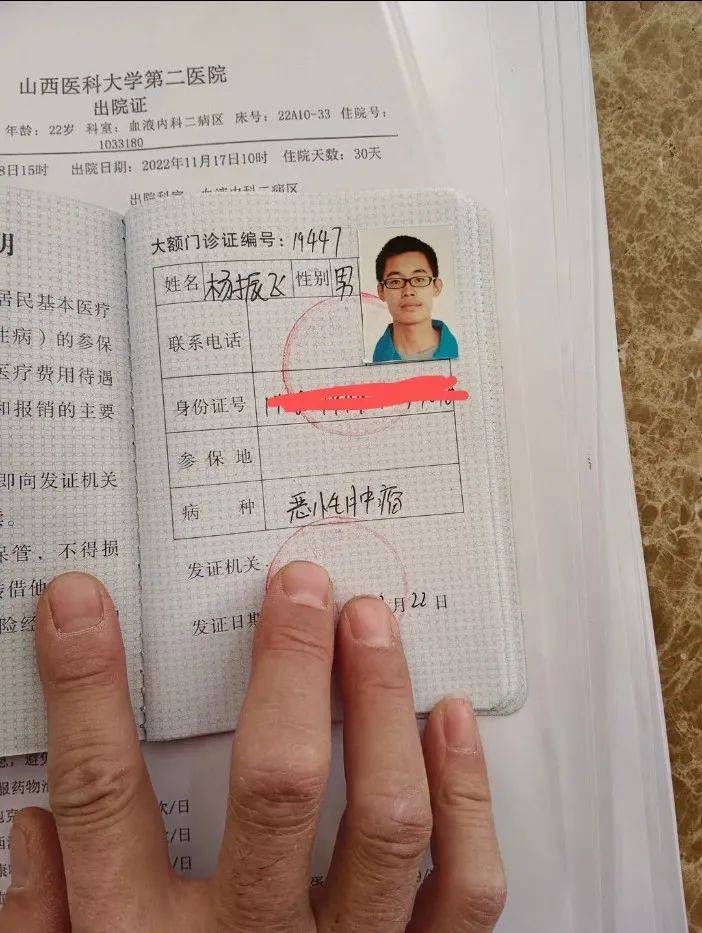 山西医科大学第二医院
出院证
年龄：22岁 科室：血液内科二病区 床号：22A10-33 住院号：
1033180
8日15时 出院日期：2022年11月17日10时 住院天数：30天
出院科室 血液内科二病区
明
居民基本医疗
性病）的参保
医疗费用待遇
和报销的主要
即向发证机关
保管，不得损
转借他
险经
大额门诊证编号：19447
姓名 杨振飞 性别 男
联系电话
身份证号
参保地
病种 恶性肿瘤
发证机关：
发证日期 月22日
服药物治
次/日
次/日
次/日